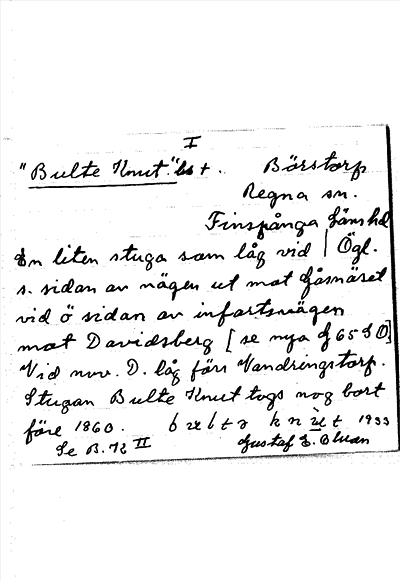 I
"Bulte Knut." bs +. Börstorp
Regna sn.
Finspånga läns hd
En liten stuga som låg vid | Ögl.
s. sidan av vägen ut mot Gåsnäset
vid ö sidan av infartsvägen
mot Davidsberg [se nya J65 S O]
Vid nuv. D. låg förr Vandringstorp.
Stugan Bulte Knut togs nog bort
före 1860. knùt 1933
Se B.K II Gustaf E. Olman